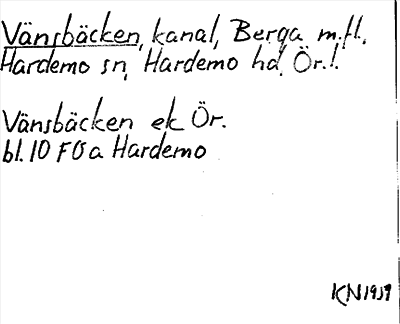 Vänsbäcken, kanal, Berga m.fl.
Hardemo sn, Hardemo hd, Ör.l.
Vänsbäcken ek Ör.
bl. 10 F0a Hardemo
KN 1959